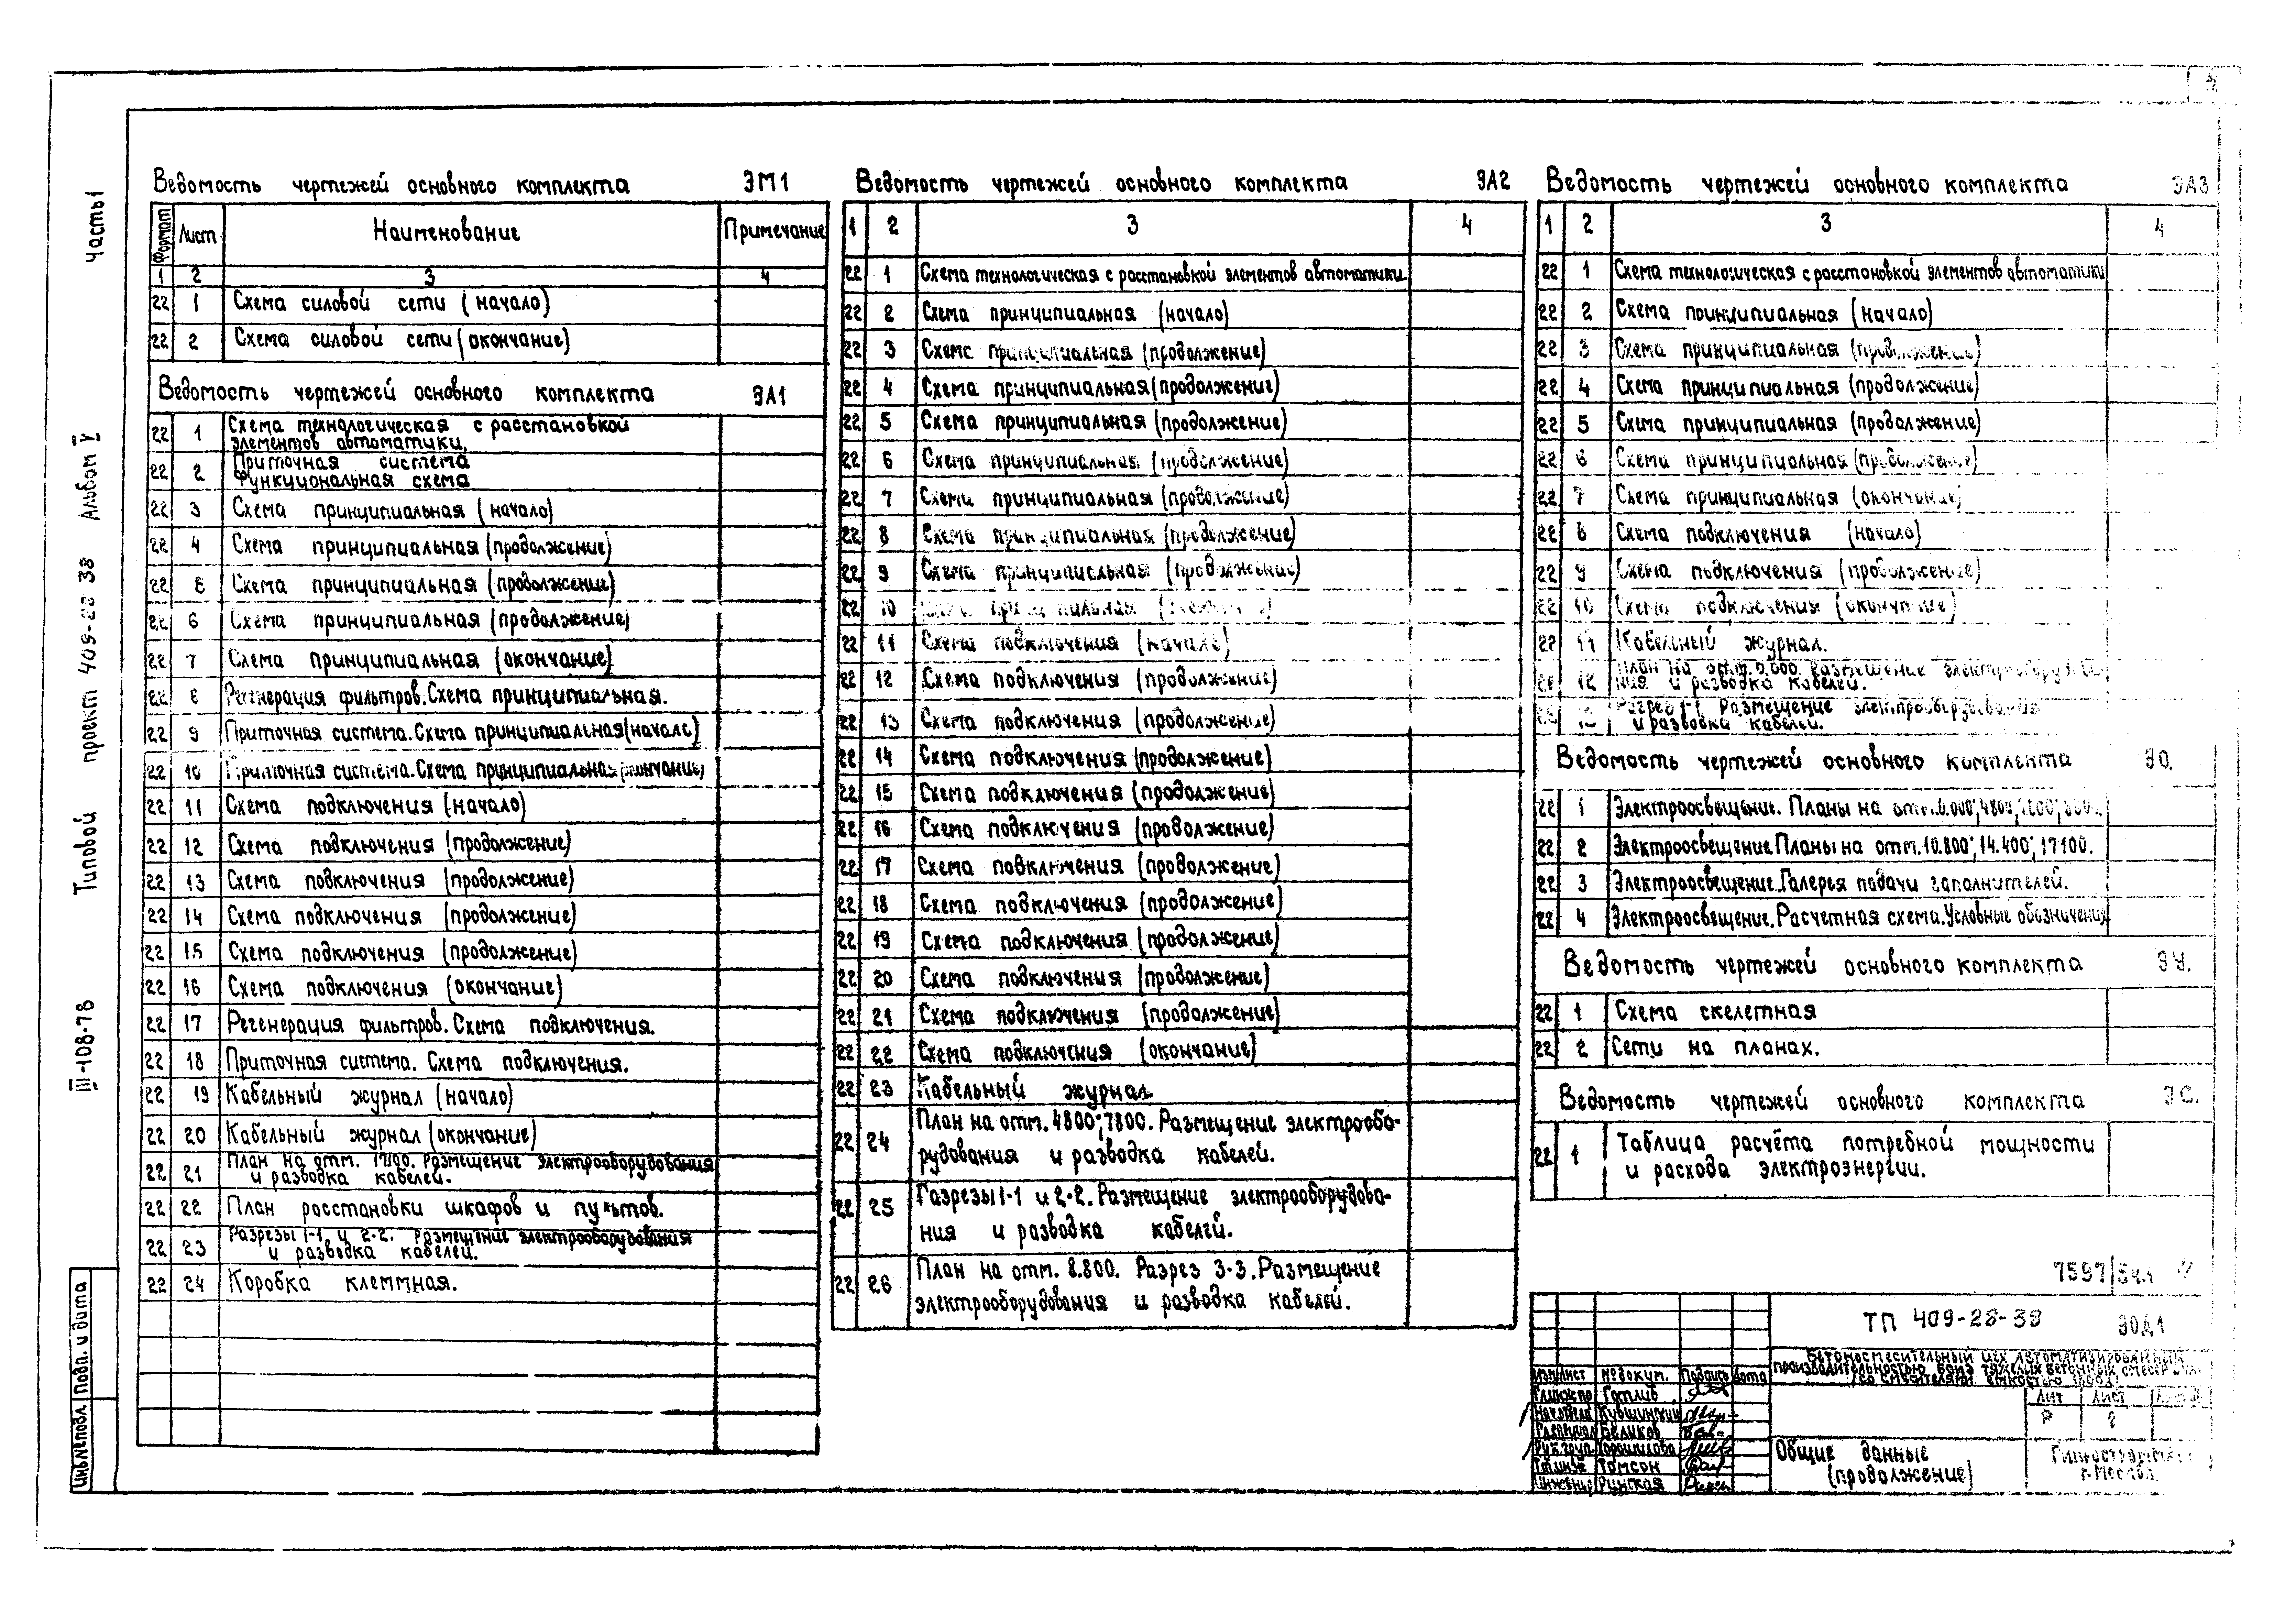 Ведомость чертежей основного комплекта ЭМ1
Формат Лист Наименование Примечание
1 2 3 4
22 1 Схема силовой сети (начало)
22 2 Схема силовой сети (окончание)
Ведомость чертежей основного комплекта ЭА1
22 1 Схема технологическая с расстановкой
элементов автоматики.
22 2 Приточная система
Функциональная схема
22 3 Схема принципиальная (начало)
22 4 Схема принципиальная (продолжение)
22 5 Схема принципиальная (продолжение)
22 6 Схема принципиальная (продолжение)
22 7 Схема принципиальная (окончание)
22 8 Регенерация фильтров. Схема принципиальная.
22 9 Приточная система. Схема принципиальная (начало)
22 10 Приточная система. Схема принципиальная (окончание)
22 11 Схема подключения (начало)
22 12 Схема подключения (продолжение)
22 13 Схема подключения (продолжение)
22 14 Схема подключения (продолжение)
22 15 Схема подключения (продолжение)
22 16 Схема подключения (окончание)
22 17 Регенерация фильтров. Схема подключения.
22 18 Приточная система. Схема подключения.
22 19 Кабельный журнал (начало)
22 20 Кабельный журнал (окончание)
22 21 План на отм. 17100. Размещение электрооборудования
и разводка кабелей.
22 22 План расстановки шкафов и пультов.
22 23 Разрезы 1-1 и 2-2. Размещение электрооборудования
и разводка кабелей.
22 24 Коробка клеммная.
Ведомость чертежей основного комплекта ЭА2
1 2 3 4
22 1 Схема технологическая с расстановкой элементов автоматики.
22 2 Схема принципиальная (начало)
22 3 Схема принципиальная (продолжение)
22 4 Схема принципиальная (продолжение)
22 5 Схема принципиальная (продолжение)
22 6 Схема принципиальная (продолжение)
22 7 Схема принципиальная (продолжение)
22 8 Схема принципиальная (продолжение)
22 9 Схема принципиальная (продолжение)
22 10
22 11 Схема подключения (начало)
22 12 Схема подключения (продолжение)
22 13 Схема подключения (продолжение)
22 14 Схема подключения (продолжение)
22 15 Схема подключения (продолжение)
22 16 Схема подключения (продолжение)
22 17 Схема подключения (продолжение)
22 18 Схема подключения (продолжение)
22 19 Схема подключения (продолжение)
22 20 Схема подключения (продолжение)
22 21 Схема подключения (продолжение)
22 22 Схема подключения (окончание)
22 23 Кабельный журнал
22 24 План на отм. 4800; 7800. Размещение электрообо-
рудования и разводка кабелей.
22 25 Разрезы 1-1 и 2-2. Размещение электрооборудова-
ния и разводка кабелей.
22 26 План на отм. 8.800. Разрез 3-3. Размещение
электрооборудования и разводка кабелей.
Ведомость чертежей основного комплекта ЭА3
1 2 3 4
22 1 Схема технологическая с расстановкой элементов автоматики
22 2 Схема принципиальная (начало)
22 3 Схема принципиальная (продолжение)
22 4 Схема принципиальная (продолжение)
22 5 Схема принципиальная (продолжение)
22 6 Схема принципиальная (продолжение)
22 7 Схема принципиальная (окончание)
22 8 Схема подключения (начало)
22 9 Схема подключения (продолжение)
22 10 Схема подключения (окончание)
22 11 Кабельный журнал.
22 12 План на отм. 0.000. Размещение электрооборудова-
ния и разводка кабелей.
22 13 Разрез 1-1. Размещение электрооборудования
и разводка кабелей.
Ведомость чертежей основного комплекта ЭО.
22 1 Электроосвещение. Планы на отм. 0.000; 4800;
22 2 Электроосвещение. Планы на отм. 10.800; 14.400; 17100.
22 3 Электроосвещение. Галерея подачи заполнителей.
22 4 Электроосвещение. Расчетная схема. Условные обозначения
Ведомость чертежей основного комплекта ЭУ.
22 1 Схема скелетная
22 2 Сети на планах.
Ведомость чертежей основного комплекта ЭС.
22 1 Таблица расчёта потребной мощности
и расхода электроэнергии.
7597/5ч.1
ТП 409-28-38 ЭОД1
Бетоносмесительный цех автоматизированный
производительностью
со смесителями емкостью
Изм Лист №докум. Подпись Дата
Гл.инж.пр Готлиб
Нач.отдела Кувшинский
Гл.спец. Беликов
Рук.груп. Ворошилова
Ст.инж Томсон
Инженер Рунская
Лит Лист
Р 2
Общие данные
(продолжение)
г. Москва.
III-108-78 Типовой проект 409-28-38 Альбом V часть 1
Инв.№подл. Подп. и дата